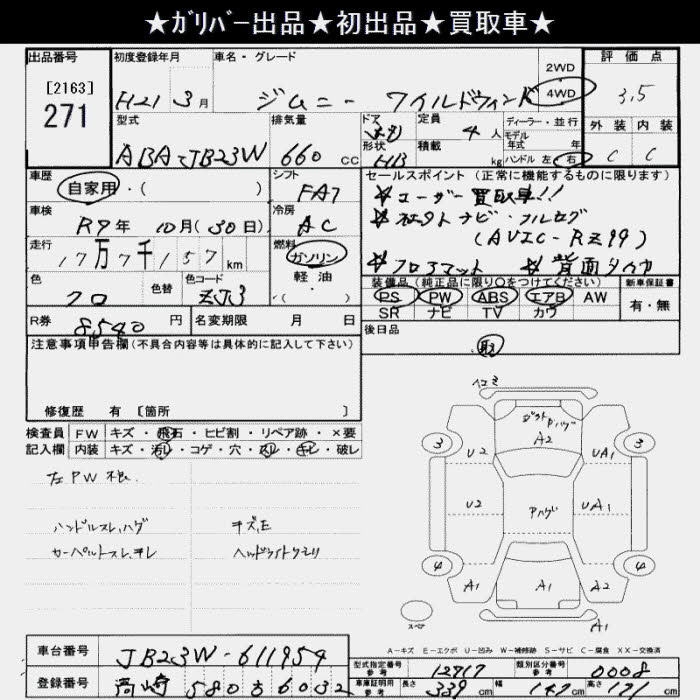 ★ｶﾞﾘﾊﾞｰ出品★初出品★買取車★
出品番号
[2163]
271
初度登録年月
H21 3月
車名・グレード
ジムニー ワイルドウインド
2WD
4WD
評価点
3.5
型式
ABA-JB23W
排気量
660 CC
ドア
形状
HB
定員
4人
積載
kg
ディーラー・並行
モデル
年式 年
ハンドル 左・右
外装 内装
C C
車歴
自家用・( )
シフト
FA7
セールスポイント (正常に機能するものに限ります)
☆ユーザー買取車!!
☆社外ナビ・フルセグ
(AVIC-RZ99)
☆フロアマット ☆背面タイヤ
車検
R9年 10月(30日)
冷房
AC
走行
17万7千157km
燃料
ガソリン
軽油
・( )
色
クロ
色替
色コード
ZJ3
装備品 (純正品に限り○をつけてください)
PS PW ABS エアB AW
SR ナビ TV カワ
新車保証書
有・無
R券
8540円
名変期限 月 日
後日品
取
注意事項申告欄(不具合内容等は具体的に記入して下さい)
修復歴 有 [箇所 ]
検査員
記入欄
FW キズ・飛石・ヒビ割・リペア跡・×要
内装 キズ・汚レ・コゲ・穴・スレ・キレ・破レ
左PW不良
ハンドルスレ,ハゲ キズ,E
カーペットスレ,キレ ヘッドライトクモリ
ヘコミ
A2
3 U2 UA1 3
U2 Pハゲ UA1
4 4
A1 A1 A2
スペア
A1
A-キズ E-エクボ U-凹み W-補修跡 S-サビ C-腐食 XX-交換済
車台番号
JB23W-611954
登録番号
高崎 580 あ 6032
型式指定番号
参考
12717
類別区分番号
参考
0008
車庫証明用
参考
長さ 339cm
幅 147cm
高さ 171cm